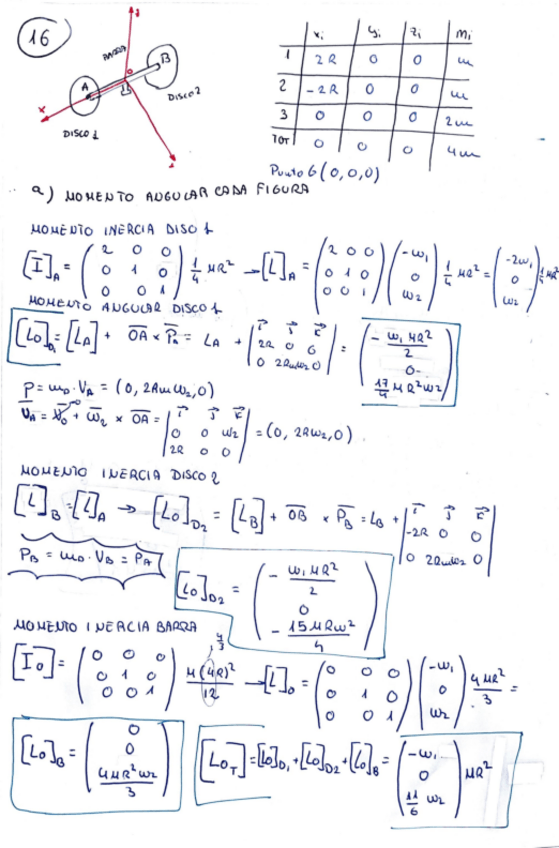 16
y
BARRA
o
A
B
x
DISCO 1
DISCO 2
xi yi zi mi
1 2R 0 0 m
2 -2R 0 0 m
3 0 0 0 2m
TOT 0 0 0 4m
Punto G (0,0,0)
a) MOMENTO ANGULAR CADA FIGURA
MOMENTO INERCIA DISCO 1
[I]A = (2 0 0 / 0 1 0 / 0 0 1) 1/4 MR² → [L]A = (2 0 0 / 0 1 0 / 0 0 1) (-ω1 / 0 / ω2) 1/4 MR² = (-2ω1 / 0 / ω2) 1/4 MR²
MOMENTO ANGULAR DISCO 1
[LO]D1 = [LA] + OA × PA = LA + |i j k / 2R 0 0 / 0 2Rmω2 0| = (-ω1MR²/2 / 0 / 17/4 MR²ω2)
P = mD · VA = (0, 2Rmω2, 0)
VA = V0 + ω2 × OA = |i j k / 0 0 ω2 / 2R 0 0| = (0, 2Rω2, 0)
MOMENTO INERCIA DISCO 2
[L]B = [L]A → [LO]D2 = [LB] + OB × PB = LB + |i j k / -2R 0 0 / 0 2Rmω2 0|
PB = mD · VB = PA
[LO]D2 = (-ω1MR²/2 / 0 / -15MRω²/4)
MOMENTO INERCIA BARRA
4/3
[IO] = (0 0 0 / 0 1 0 / 0 0 1) M(4R)²/12 → [L]O = (0 0 0 / 0 1 0 / 0 0 1) (-ω1 / 0 / ω2) 4MR²/3 =
[LO]B = (0 / 0 / 4MR²ω2/3)
[LOT] = [LO]D1 + [LO]D2 + [LO]B = (-ω1 / 0 / 11/6 ω2) MR²